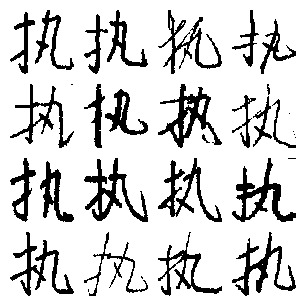 执执执执
执执执执
执执执执
执执执执